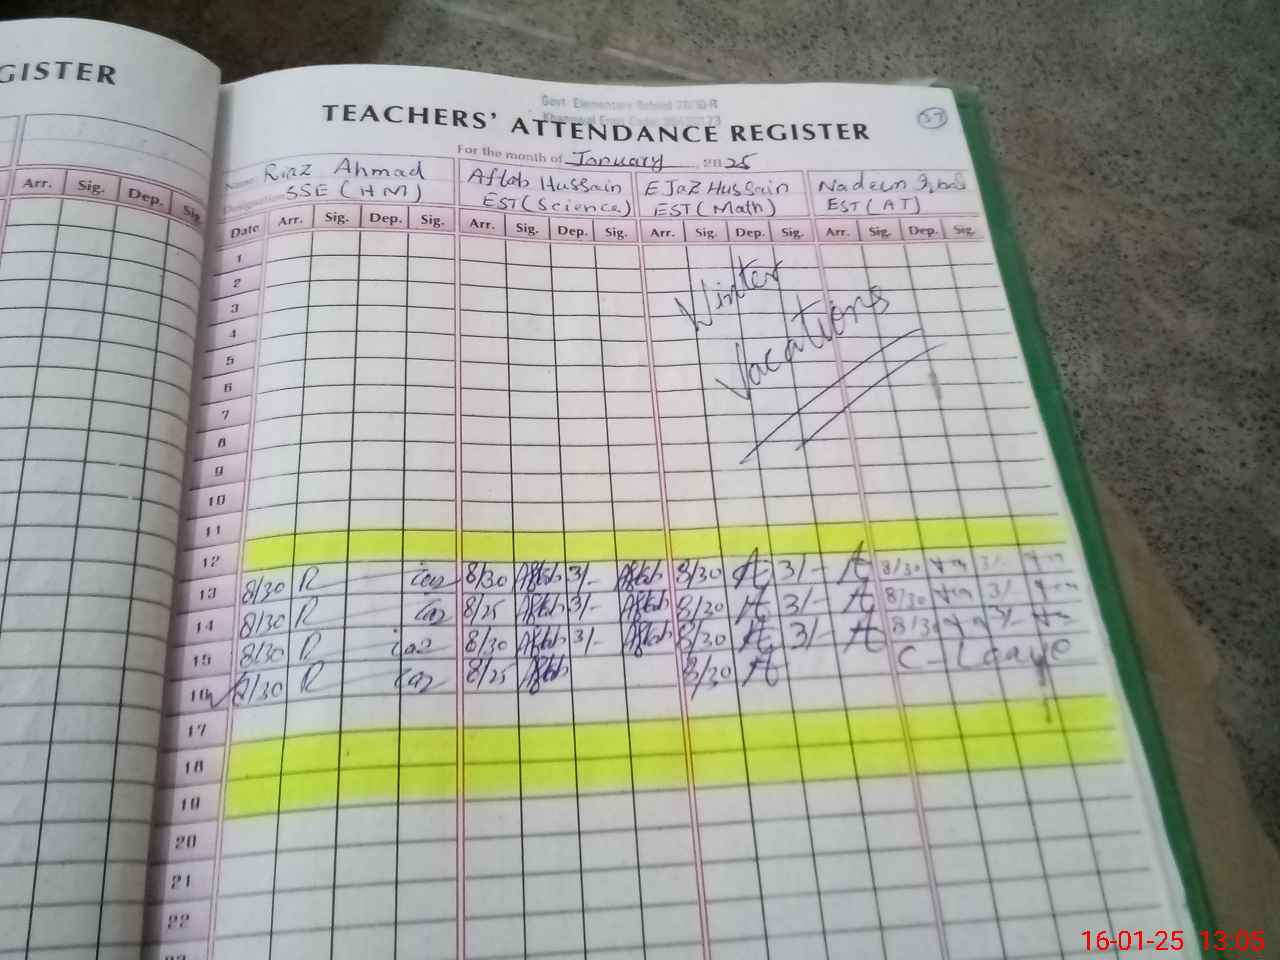 GISTER
Arr. Sig. Dep. Sig
Govt. Elementary School 78/10-R
TEACHERS' ATTENDANCE REGISTER
57
For the month of January 2025
Name Riaz Ahmad
Designation SSE (HM)
Aftab Hussain
EST (Science)
EJaz Hussain
EST (Math)
Nadeem
EST (AT)
Date Arr. Sig. Dep. Sig. Arr. Sig. Dep. Sig. Arr. Sig. Dep. Sig. Arr. Sig. Dep. Sig.
1
2
3
4
5
6
7
8
9
10
11
12
Winter
Vacations
13 8/30 R iaz 8/30 Aftab 3/- Aftab 8/30 A 3/- A 8/30 3/-
14 8/30 R iaz 8/25 Aftab 3/- Aftab 8/30 A 3/- A 8/30 3/-
15 8/30 R iaz 8/30 Aftab 3/- Aftab 8/30 A 3/- A 8/30
16 8/30 R iaz 8/25 Aftab 8/30 A C-Leave
17
18
19
20
21
22
16-01-25 13:05